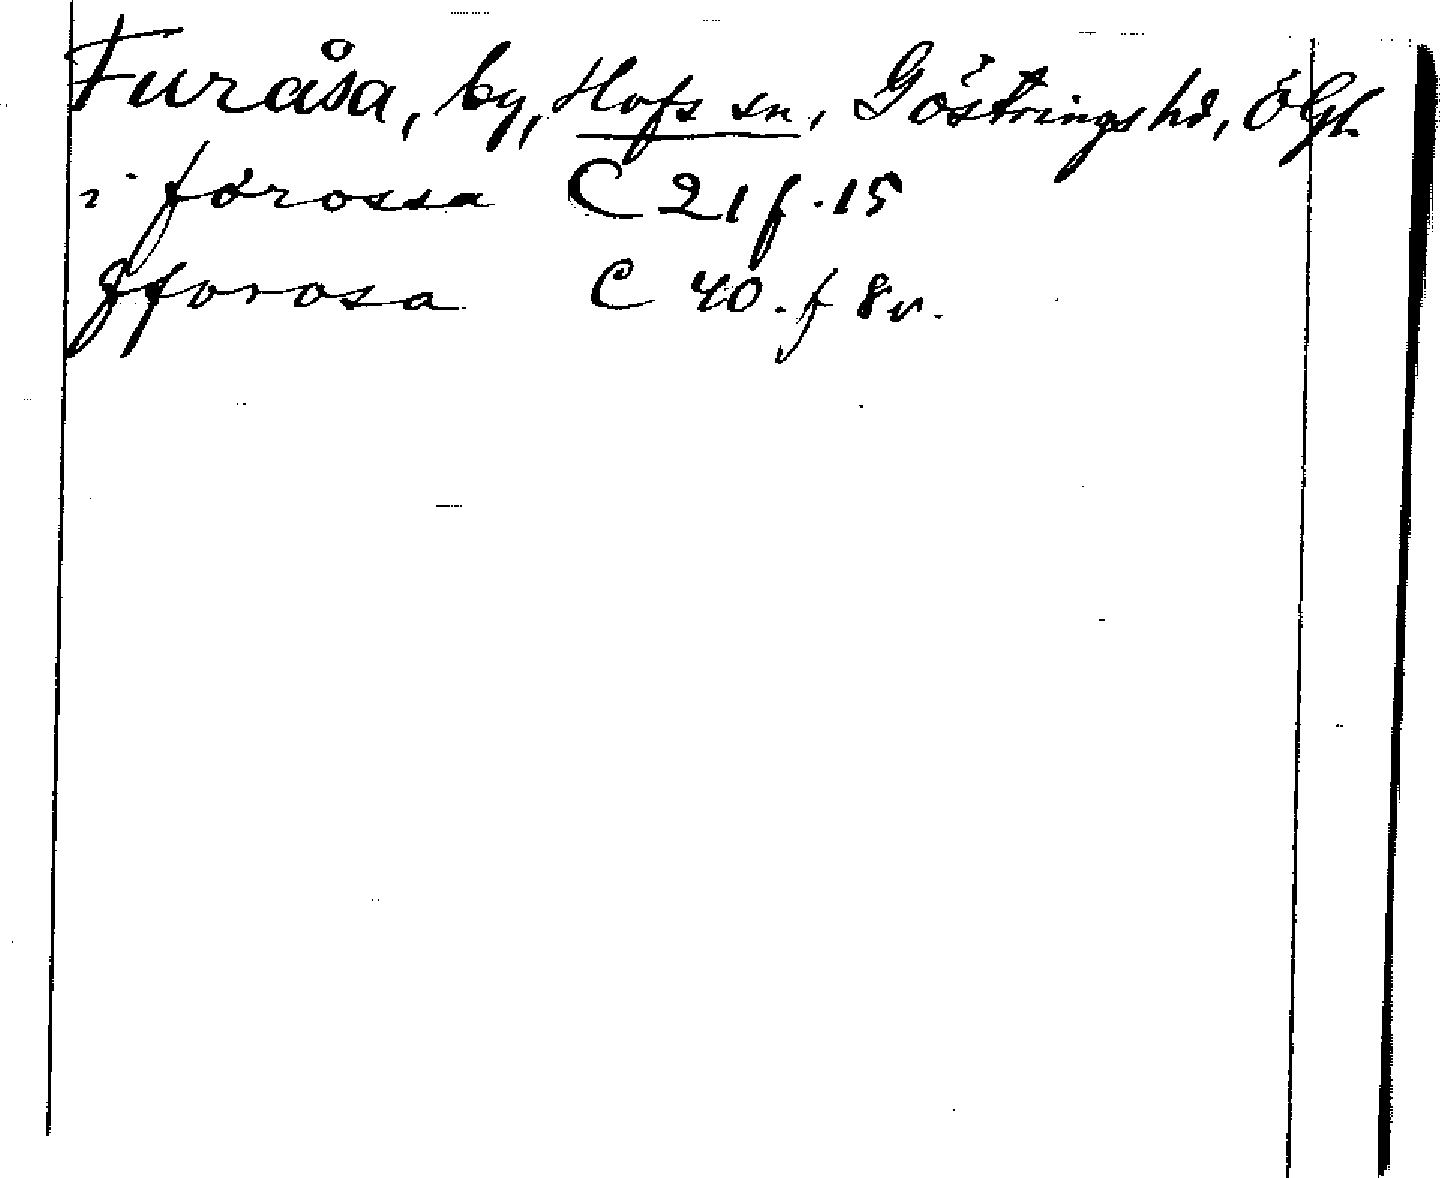 Furåsa, by, Hofs sn, Göstrings hd, ÖGtl.
i førossa C 21 f. 15
fforosa C 40. f 8v.